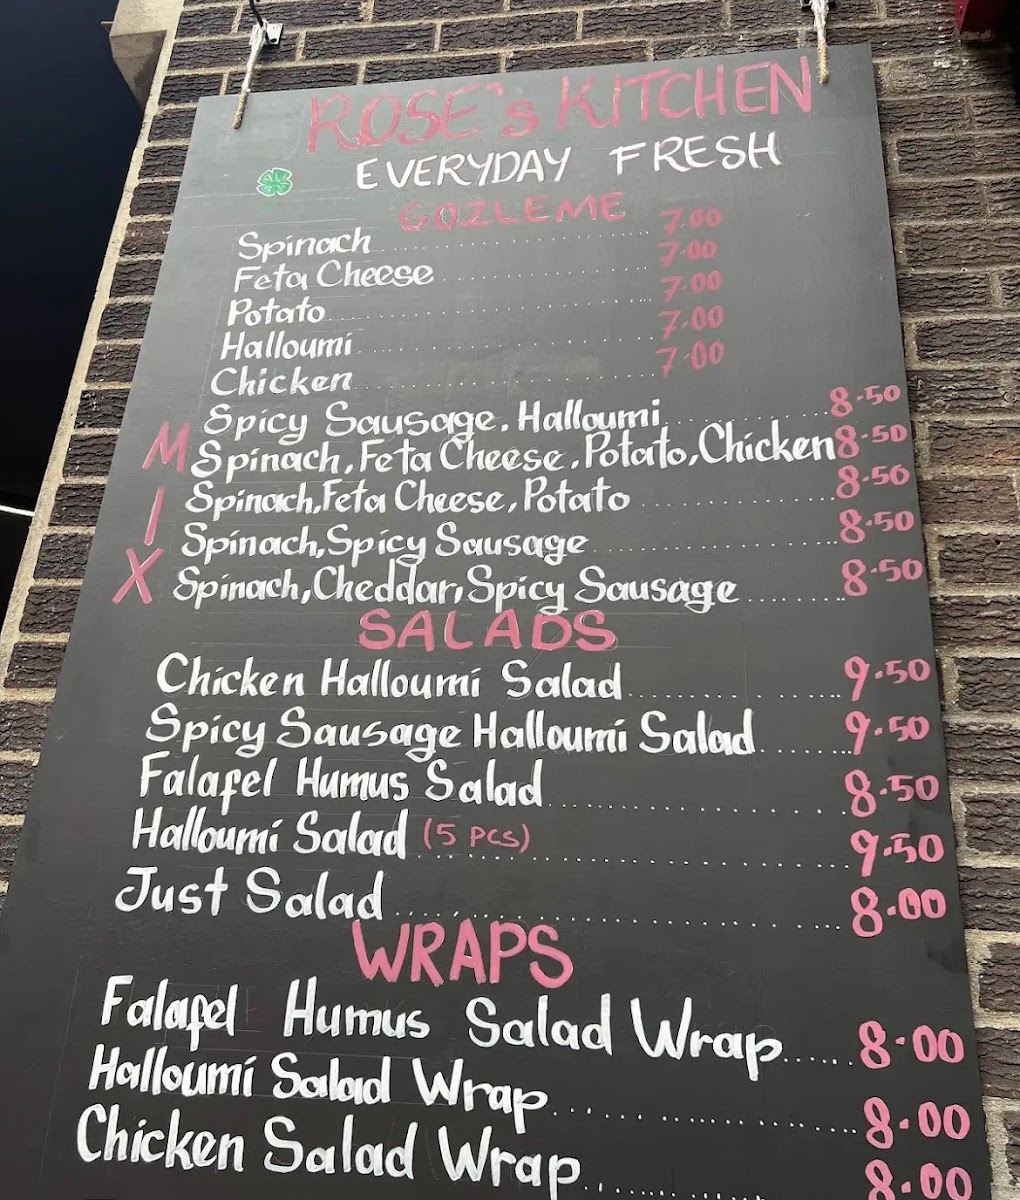 ROSE's KITCHEN
EVERYDAY FRESH
GOZLEME
Spinach 7.00
Feta Cheese 7.00
Potato 7.00
Halloumi 7.00
Chicken 7.00
MIX
Spicy Sausage. Halloumi 8.50
Spinach, Feta Cheese, Potato, Chicken 8.50
Spinach, Feta Cheese, Potato 8.50
Spinach, Spicy Sausage 8.50
Spinach, Cheddar, Spicy Sausage 8.50
SALADS
Chicken Halloumi Salad 9.50
Spicy Sausage Halloumi Salad 9.50
Falafel Humus Salad 8.50
Halloumi Salad (5 pcs) 9.50
Just Salad 8.00
WRAPS
Falafel Humus Salad Wrap 8.00
Halloumi Salad Wrap 8.00
Chicken Salad Wrap 8.00